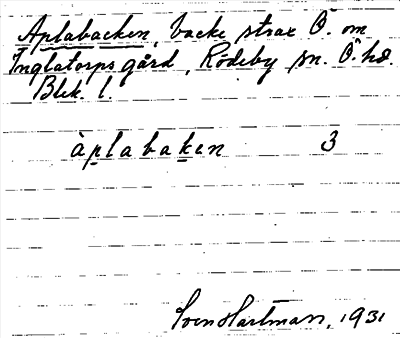 Aplabacken, backe strax Ö. om
Inglatorps gård, Rödeby sn. Ö. hd.
Blek. l.
àplabaken 3
Sven Hartman, 1931